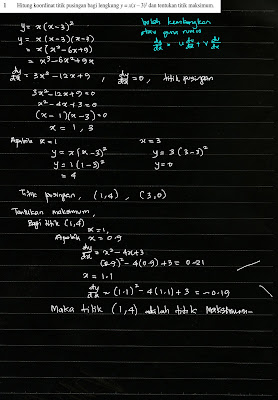 1 Hitung koordinat titik pusingan bagi lengkung y = x(x − 3)² dan tentukan titik maksimum.
y = x(x-3)²
boleh kembangkan
y = x(x-3)(x-3)
atau guna rumus
= x(x²-6x+9)
dy/dx = u dv/dx + v du/dx
= x³-6x²+9x
dy/dx = 3x²-12x+9 , dy/dx = 0, titik pusingan
3x²-12x+9=0
x²-4x+3=0
(x-1)(x-3)=0
x = 1, 3
Apabila x = 1
x = 3
y = x(x-3)²
y = 3(3-3)²
y = 1(1-3)²
y = 0
= 4
Titik pusingan, (1,4), (3,0)
Tentukan maksimum,
Bagi titik (1,4)
x=1,
Apabila x = 0.9
dy/dx = x²-4x+3
(0.9)²-4(0.9)+3 = 0.21
x = 1.1
dy/dx = (1.1)²-4(1.1)+3 = -0.19
Maka titik (1,4) adalah titik maksimum.